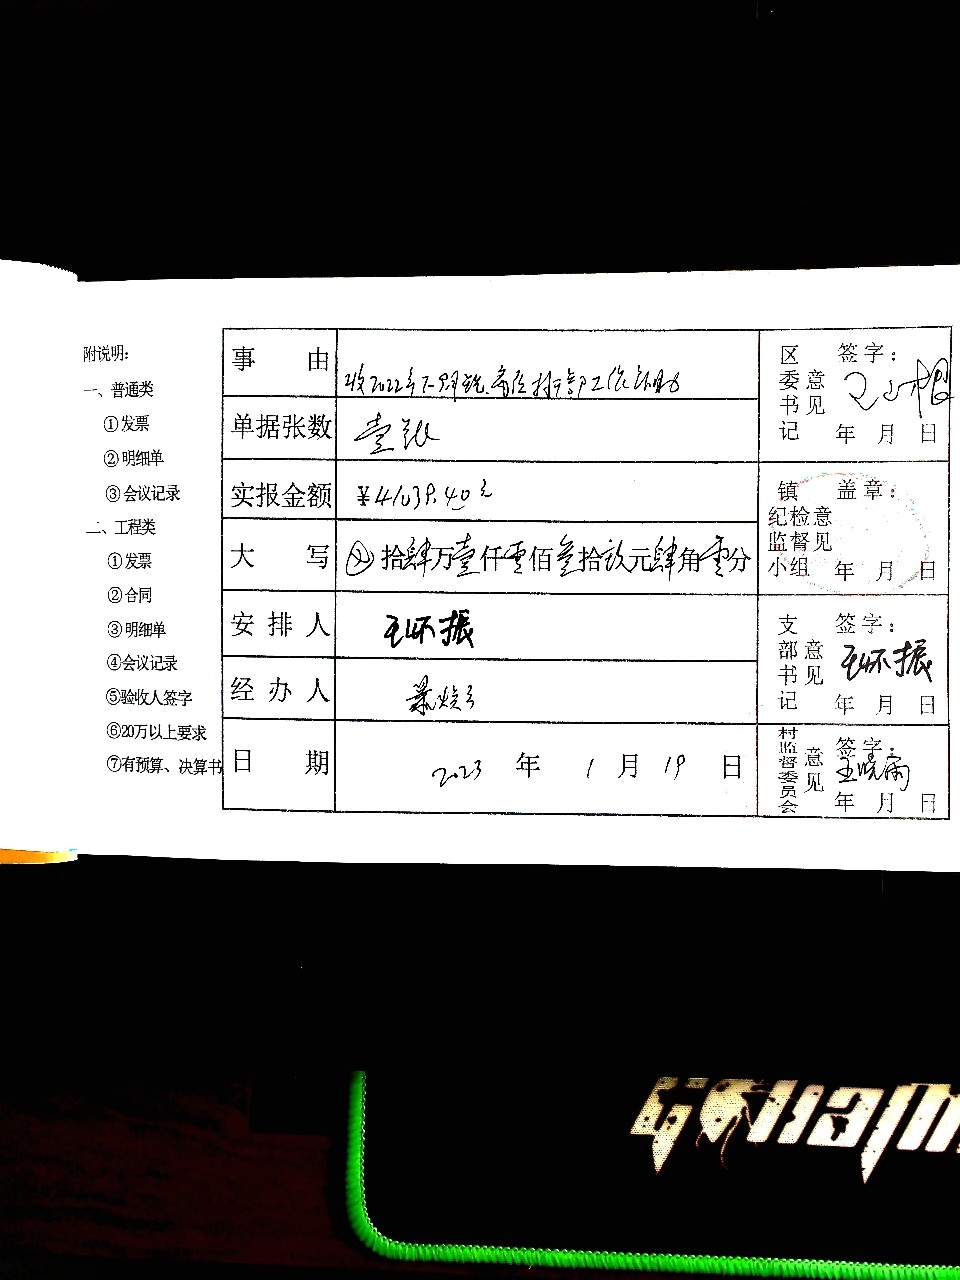 附说明：
一、普通类
①发票
②明细单
③会议记录
二、工程类
①发票
②合同
③明细单
④会议记录
⑤验收人签字
⑥20万以上要求
⑦有预算、决算书
事 由
收2022年工作补助
单据张数
壹张
实报金额
¥41039.40元
大 写
拾肆万壹仟零佰叁拾玖元肆角零分
安 排 人
王怀振
经 办 人
日 期
2023 年 1 月 19 日
区委书记意见
签字：
年 月 日
镇纪检监督小组意见
盖章：
年 月 日
支部书记意见
签字：
王怀振
年 月 日
村监督委员会意见
签字：
王晓雨
年 月 日